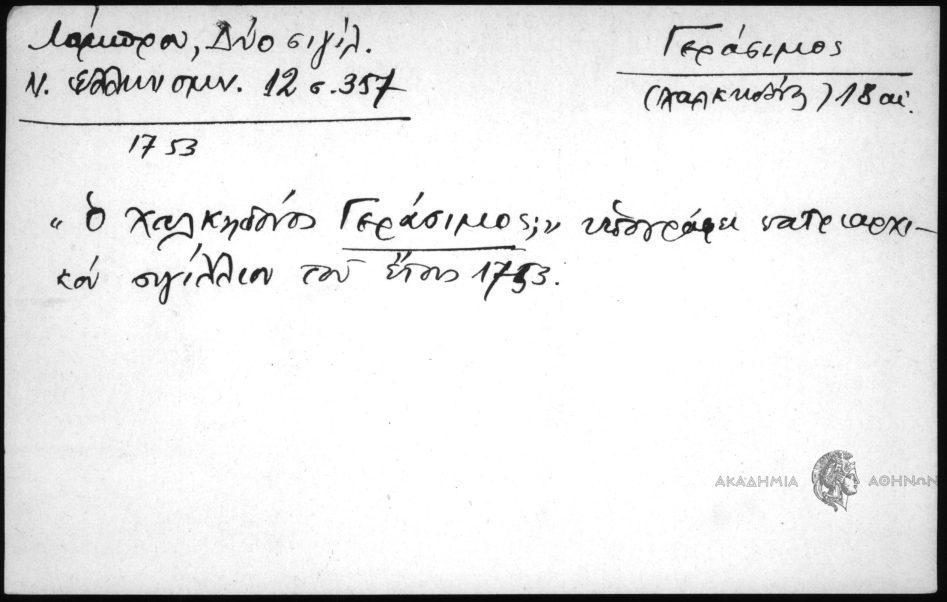 Λάμπρου, Δύο σιγίλ.
Ν. Ελληνομν. 12 σ. 357
1753
Γεράσιμος
(Χαλκηδών) 18 αἰ.
"ὁ Χαλκηδόνος Γεράσιμος;" ὑπογράφει πατριαρχι-
κόν σιγίλλιον τοῦ ἔτους 1753.
ΑΚΑΔΗΜΙΑ ΑΘΗΝΩΝ